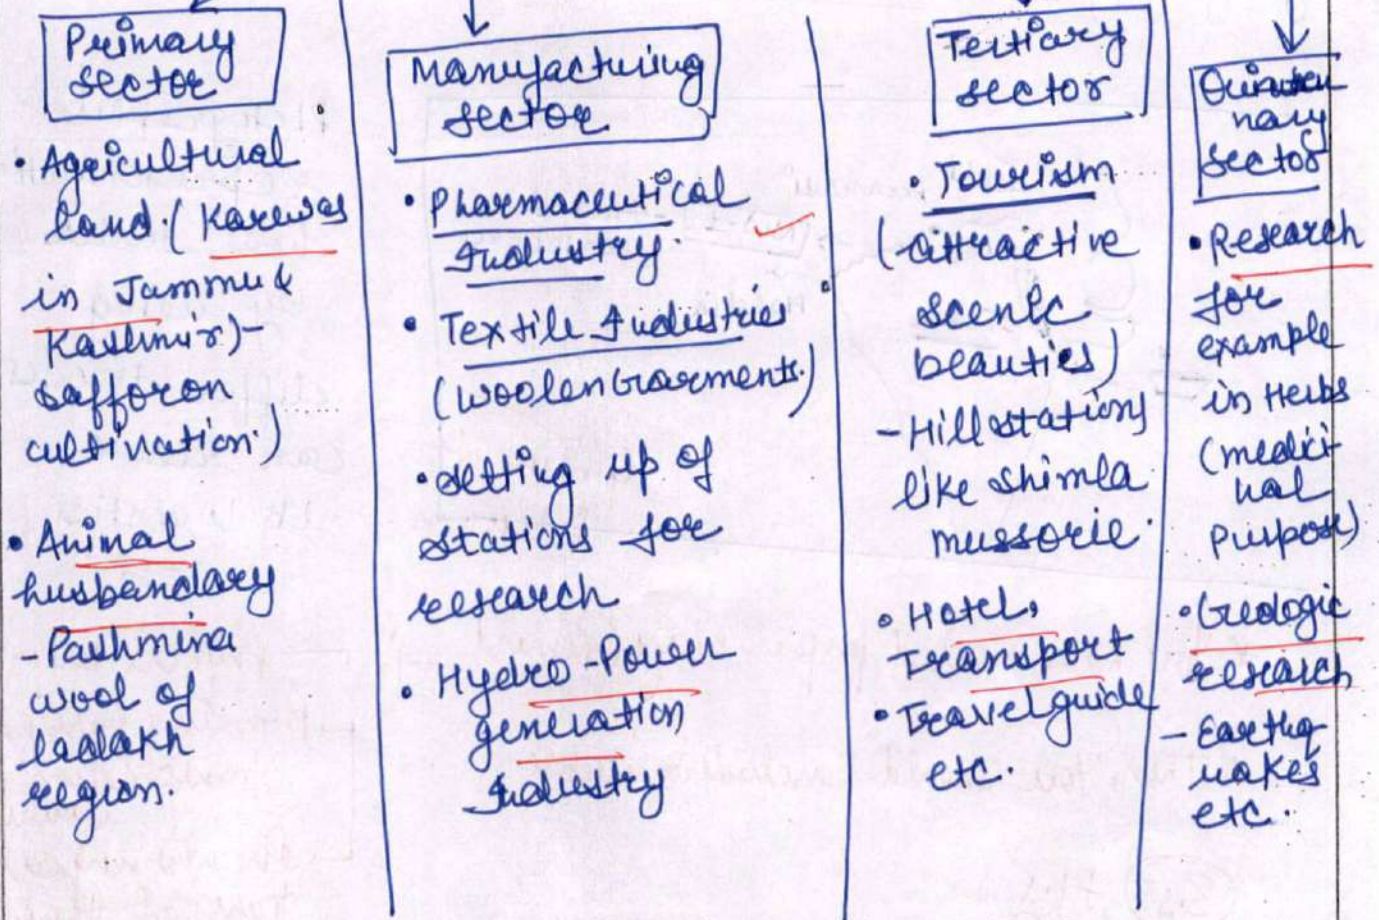 Primary
sector
• Agricultural
land. (Karewas
in Jammu &
Kashmir) -
safforon
cultivation.)
• Animal
husbandary
- Pashmina
wool of
ladakh
region.
Manufacturing
sector
• Pharmaceutical
Industry.
• Textile Industries
(woolen Garments.)
• setting up of
stations for
research
• Hydro - Power
generation
Industry
Tertiary
sector
• Tourism
(attractive
scenic
beauties)
- Hill stations
like shimla
mussorie.
• Hotel,
Transport
• Travel guide
etc.
nary
sector
• Research
for
example
in Herbs
(medici
nal
purpose)
• Geologic
research
- Earthq
uakes
etc.